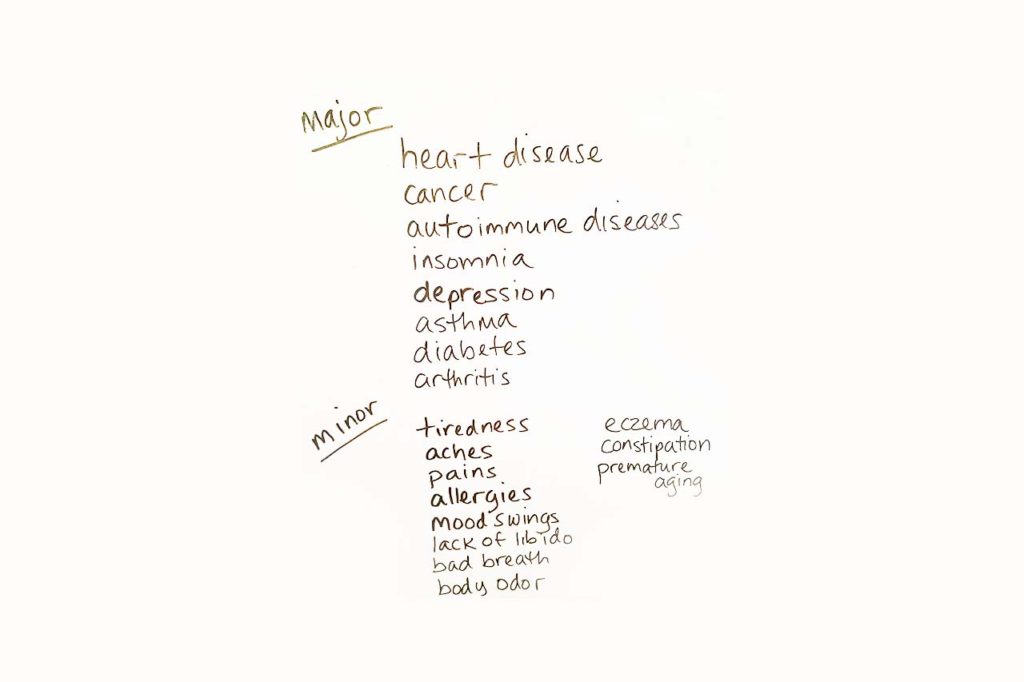 Major
heart disease
cancer
autoimmune diseases
insomnia
depression
asthma
diabetes
arthritis
minor
tiredness
aches
pains
allergies
mood swings
lack of libido
bad breath
body odor
eczema
constipation
premature
aging